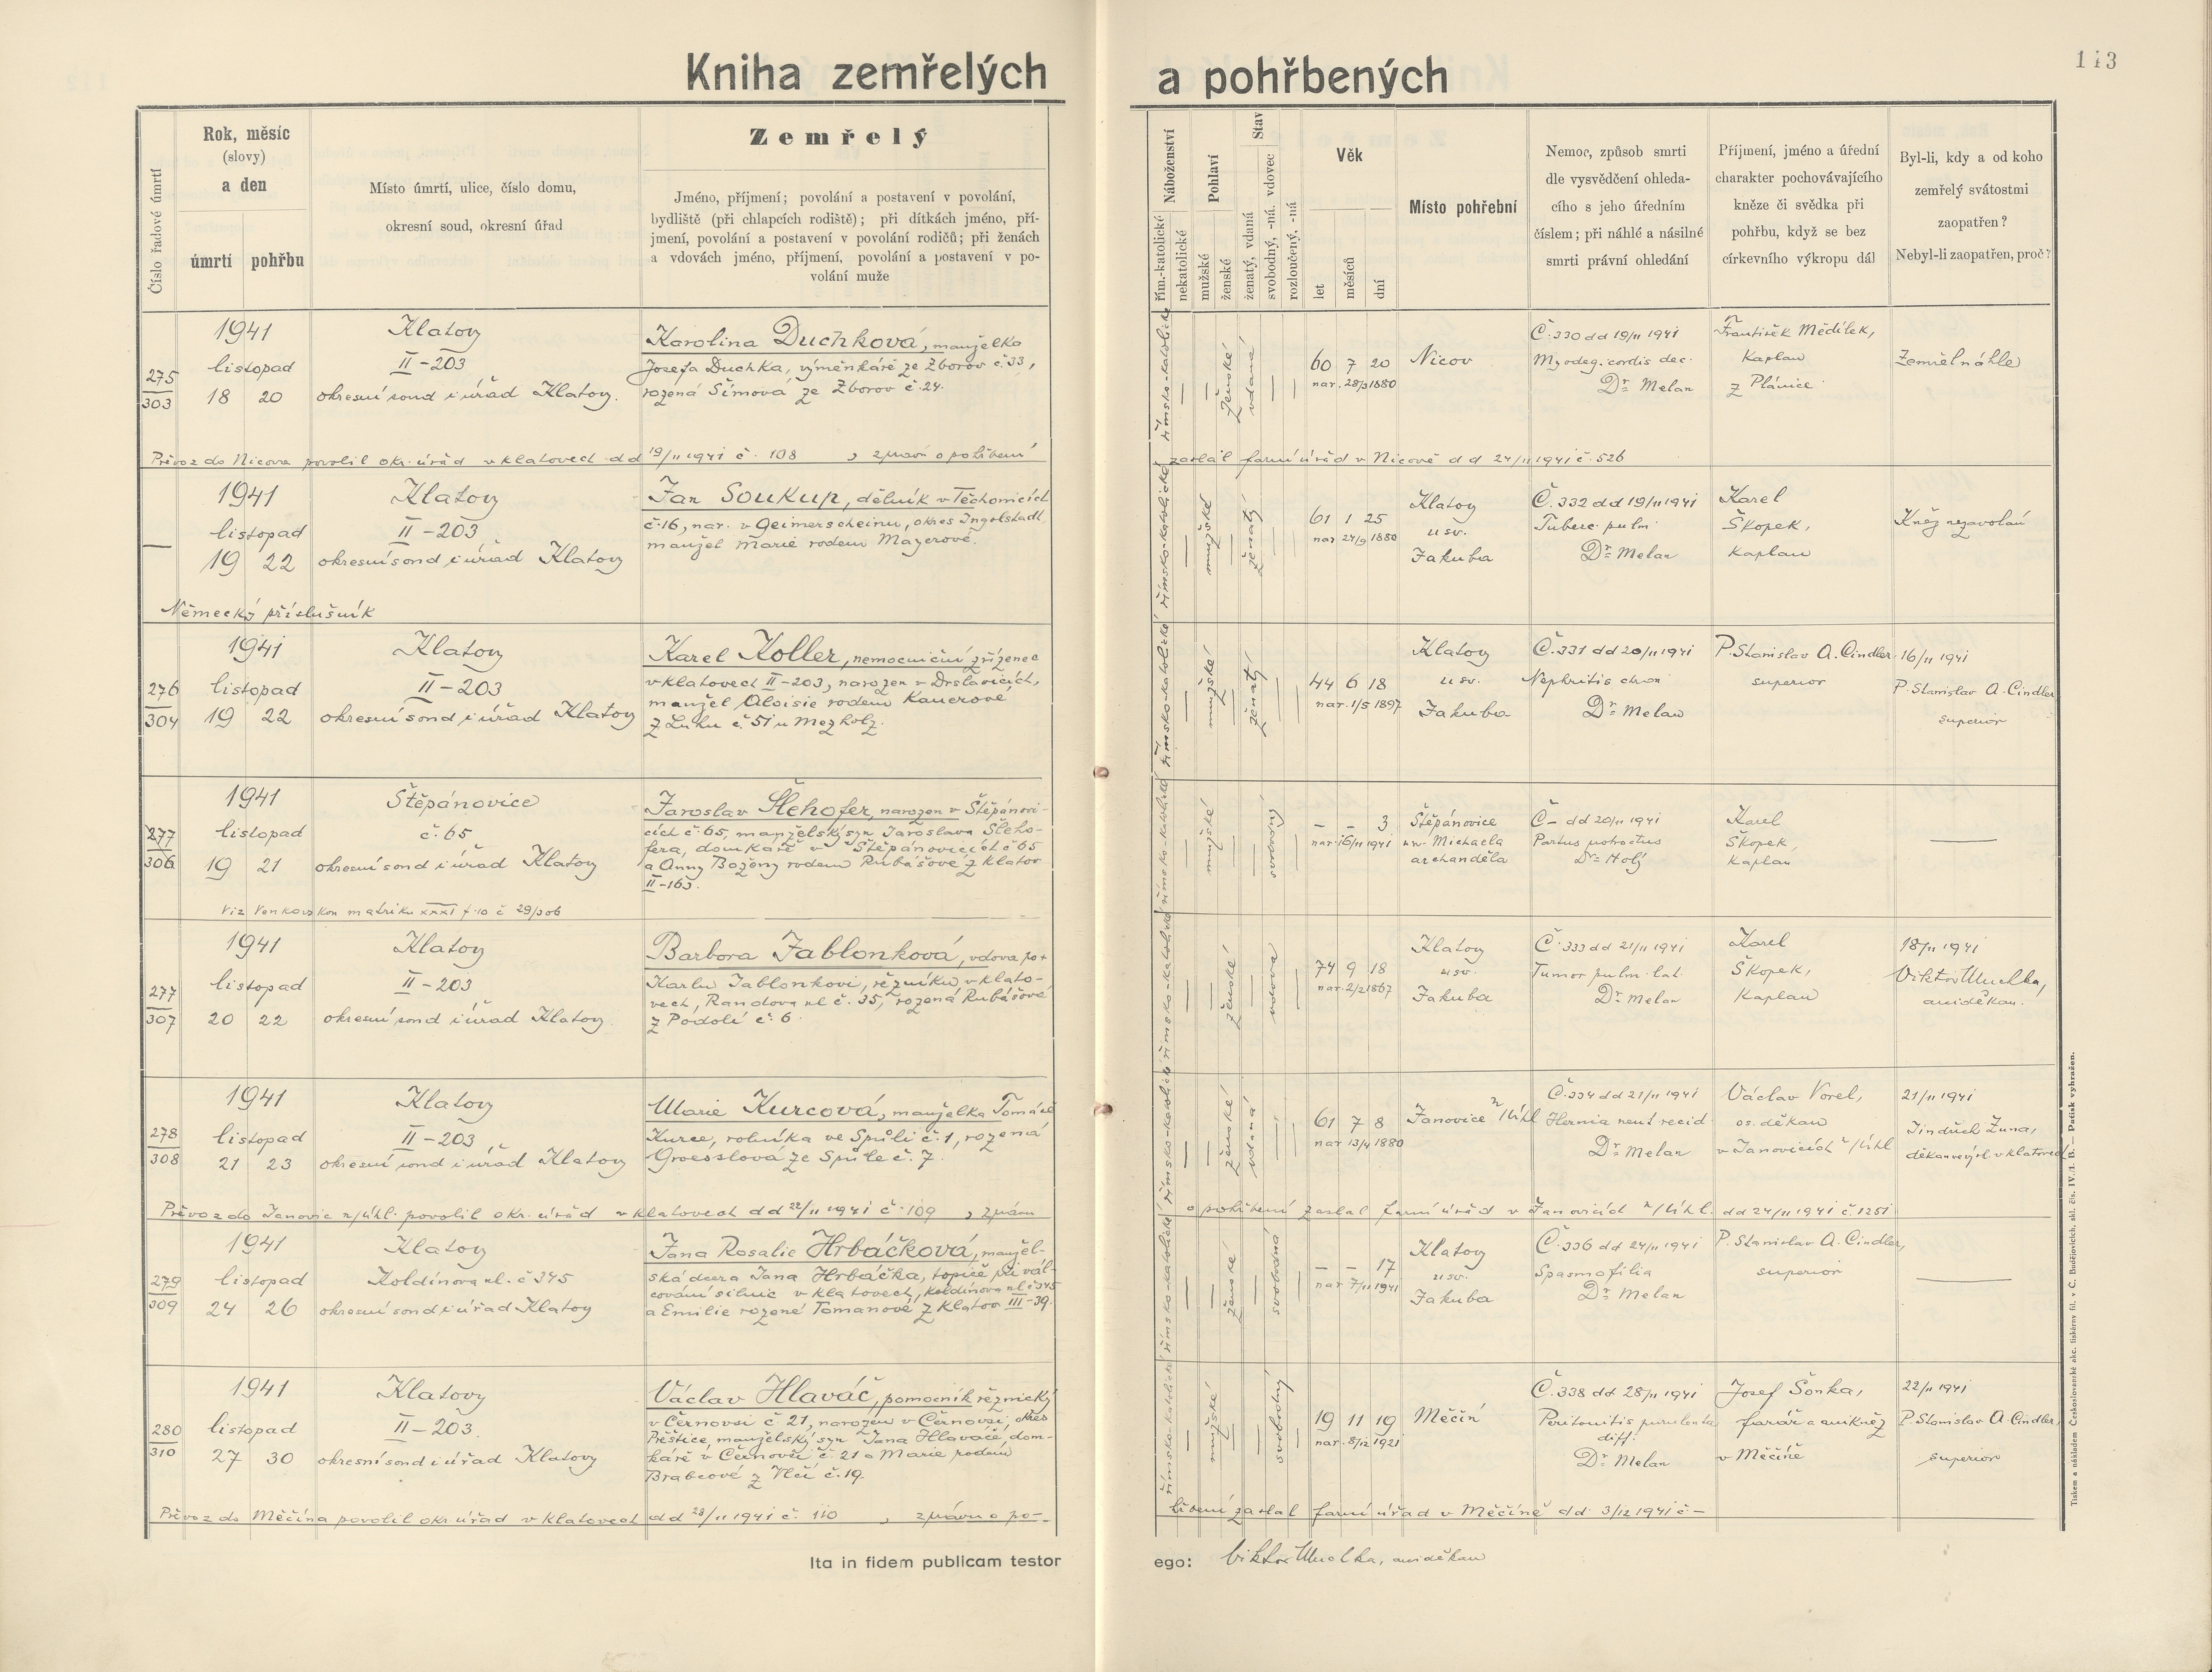 Kniha zemřelých a pohřbených
113
Číslo řadové úmrtí
Rok, měsíc
(slovy)
a den
úmrtí pohřbu
Místo úmrtí, ulice, číslo domu,
okresní soud, okresní úřad
Zemřelý
Jméno, příjmení; povolání a postavení v povolání,
bydliště (při chlapcích rodiště); při dítkách jméno, pří-
jmení, povolání a postavení v povolání rodičů; při ženách
a vdovách jméno, příjmení, povolání a postavení v po-
volání muže
Náboženství
řím.-katolické
nekatolické
Pohlaví
mužské
ženské
Stav
ženatý, vdaná
svobodný, -ná. vdovec
rozloučený, -ná
Věk
let
měsíců
dní
Místo pohřební
Nemoc, způsob smrti
dle vysvědčení ohleda-
cího s jeho úředním
číslem; při náhlé a násilné
smrti právní ohledání
Příjmení, jméno a úřední
charakter pochovávajícího
kněze či svědka při
pohřbu, když se bez
církevního výkropu dál
Byl-li, kdy a od koho
zemřelý svátostmi
zaopatřen?
Nebyl-li zaopatřen, proč?
275
303
1941
listopad
18 20
Klatovy
II-203
okresní soud i úřad Klatovy.
Karolina Duchková, manželka
Josefa Duchka, výměnkáře ze Zborov č. 33,
rozená Šimová ze Zborov č. 24.
římsko-katolické
ženské
vdaná
60 7 20
nar. 28/3 1880
Nicov
Č. 330 dd 19/11 1941
Myodeg. cordis dec.
Dr. Melan
František Mědílek,
kaplan
z Plánice
Zemřel náhle
Převoz do Nicova povolil okr. úřad v Klatovech dd 19/11 1941 č. 108, zprávu o pohřbení
zaslal farní úřad v Nicově dd 24/11 1941 č. 526
1941
listopad
19 22
Klatovy
II-203
okresní soud i úřad Klatovy
Jan Soukup, dělník v Těchonicích
č. 16, nar. v Geimerscheinu, okres Ingolstadt,
manžel Marie rodem Mayerové.
římsko-katolické
mužské
ženatý
61 1 25
nar 24/9 1880
Klatovy
u sv.
Jakuba
Č. 332 dd 19/11 1941
Tuberc. pulm.
Dr. Melan
Karel
Škopek,
kaplan
Kněz nezavolán
Německý příslušník
276
304
1941
listopad
19 22
Klatovy
II-203
okresní soud i úřad Klatovy
Karel Koller, nemocniční zřízenec
v Klatovech II-203, narozen v Drslavicích,
manžel Aloisie rodem Kauerové
z Luhu č. 51 u Mezholz.
římsko-katolické
mužské
ženatý
44 6 18
nar. 1/5 1897
Klatovy
u sv.
Jakuba
Č. 331 dd 20/11 1941
Nephritis chron
Dr. Melan
P. Stanislav A. Cindler
superior
16/11 1941
P. Stanislav A. Cindler
superior
277
306
1941
listopad
19 21
Štěpánovice
č. 65
okresní soud i úřad Klatovy
Jaroslav Šlehofer, narozen v Štěpánovi-
cích č. 65, manželský syn Jaroslava Šleho-
fera, domkáře v Štěpánovicích č 65
a Anny Boženy rodem Rubášové z Klatov
II-163.
římsko-katolické
mužské
svobodný
- - 3
nar. 16/11 1941
Štěpánovice
sv. Michaela
archanděla
Č - dd 20/11 1941
Partus
Dr. Holý
Karel
Škopek,
kaplan
Viz Venkovskou matriku XXXI f. 10 č 29/306
277
307
1941
listopad
20 22
Klatovy
II-203
okresní soud i úřad Klatovy.
Barbora Jablonková, vdova po +
Karlu Jablonkovi, řezníku, v Klato-
vech, Randova ul č. 35, rozená Rubášové
z Podolí č. 6.
římsko-katolické
ženské
vdova
74 9 18
nar. 2/2 1867
Klatovy
u sv.
Jakuba
Č. 333 dd 21/11 1941
Tumor pulm. lat.
Dr. Melan
Karel
Škopek,
kaplan
18/11 1941
Viktor Muclka,
arciděkan.
278
308
1941
listopad
21 23
Klatovy
II-203
okresní soud i úřad Klatovy
Marie Kurcová, manželka Tomáše
Kurce, rolníka ve Spůli č. 1, rozená
Groesslová ze Spůle č. 7.
římsko-katolické
ženské
vdaná
61 7 8
nar 13/4 1880
Janovice n/Úhl
Č. 334 dd 21/11 1941
Hernia recid
Dr. Melan
Václav Vorel,
os. děkan
v Janovicích n/Úhl
21/11 1941
Jindřich Žuna,
Převoz do Janovic n/Úhl. povolil okr. úřad v Klatovech dd 22/11 1941 č. 109, zprávu
o pohřbení zaslal farní úřad v Janovicích n/Úhl. dd 24/11 1941 č. 1251
279
309
1941
listopad
24 26
Klatovy
Koldinova ul. č 345
okresní soud i úřad Klatovy
Jana Rosalie Hrbáčková, manžel-
ská dcera Jana Hrbáčka, topiče při vál-
cování silnic v Klatovech, Koldinova ul. č 345
a Emilie rozené Tomanové z Klatov III-39.
římsko-katolické
ženské
svobodná
- - 17
nar 7/11 1941
Klatovy
u sv.
Jakuba
Č. 336 dd 24/11 1941
Spasmofilia
Dr. Melan
P. Stanislav A. Cindler,
superior
280
310
1941
listopad
27 30
Klatovy
II-203.
okresní soud i úřad Klatovy
Václav Hlaváč, pomocník řeznický
v Černovsi č. 21, narozen v Černovsi, okres
Přeštice, manželský syn Jana Hlaváče, dom-
káře v Černovsi č. 21 a Marie rodem
Brabcové z Vlčí č. 19.
římsko-katolické
mužské
svobodný
19 11 19
nar. 8/12 1921
Měčín
Č. 338 dd 28/11 1941
Peritonitis purulenta
diff.
Dr. Melan
Josef Šonka,
farář a
v Měčíně
22/11 1941
P. Stanislav A. Cindler,
superior
Převoz do Měčína povolil okr. úřad v Klatovech dd 28/11 1941 č. 110, zprávu o po-
hřbení zaslal farní úřad v Měčíně dd 3/12 1941 č -
Ita in fidem publicam testor ego: Viktor Muclka, arciděkan
Tiskem a nákladem Československé akc. tiskárny fil. v Č. Budějovicích, skl. čís. IV./I. B. — Patisk vyhražen.